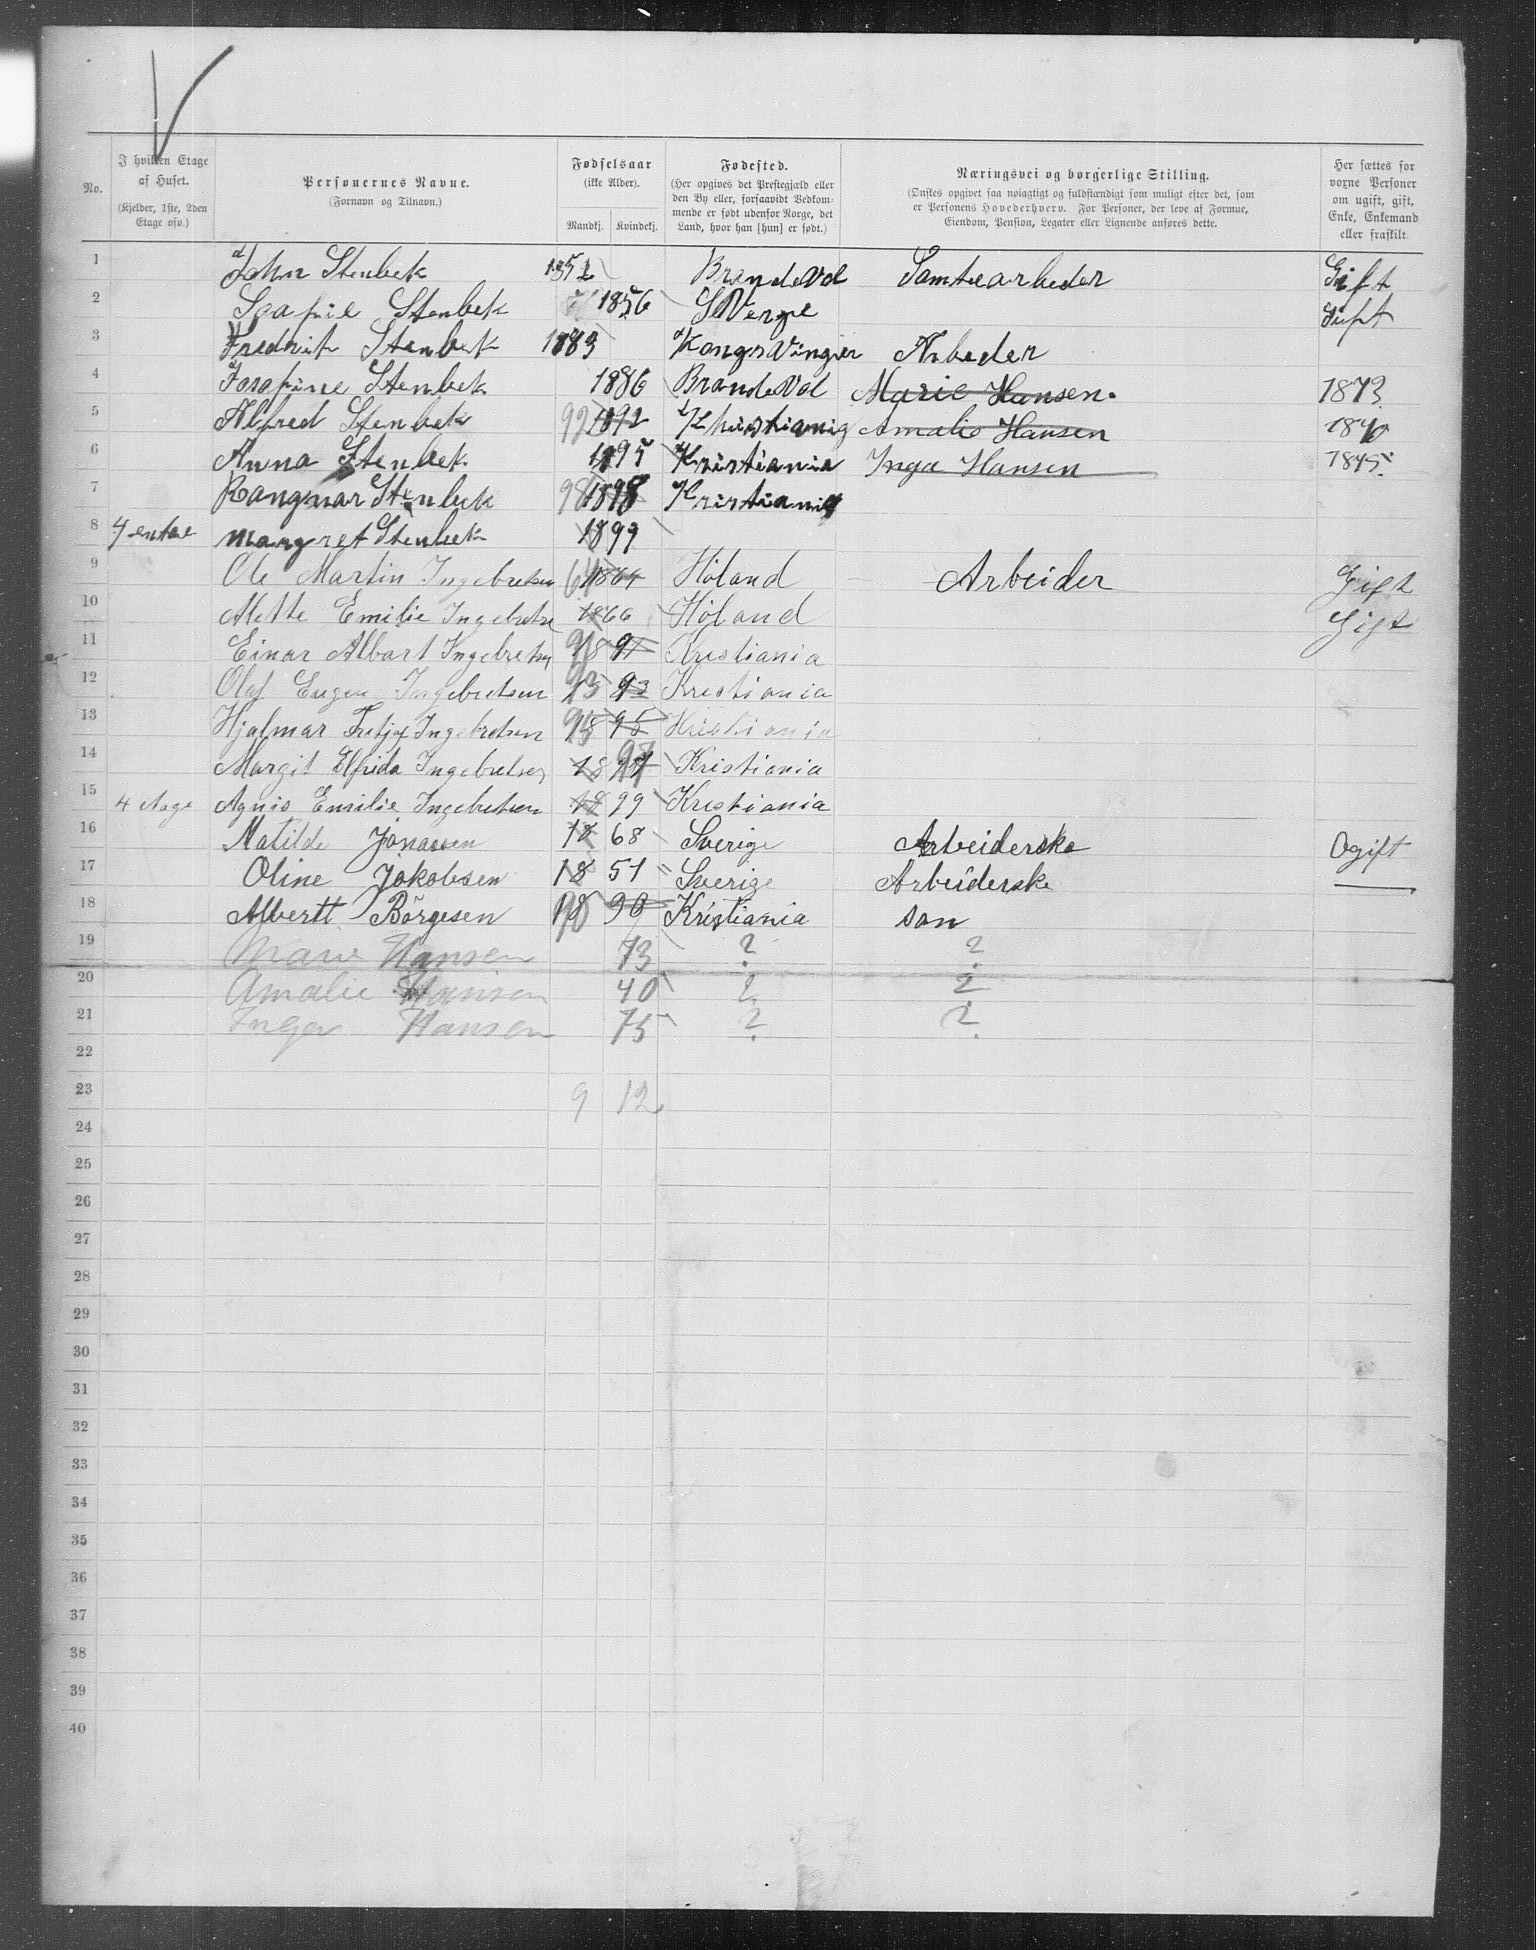 No. | I hvilken Etage af Huset. (Kjelder, 1ste, 2den Etage osv.) | Personernes Navne. (Fornavn og Tilnavn.) | Fødselsaar (ikke Alder). Mandkj. Kvindekj. | Fødested. (Her opgives det Prestegjæld eller den By eller, forsaavidt Vedkommende er født udenfor Norge, det Land, hvor han [hun] er født.) | Næringsvei og borgerlige Stilling. (Ønskes opgivet saa nøiagtigt og fuldstændigt som muligt efter det, som er Personens Hovederhverv. For Personer, der leve af Formue, Eiendom, Pension, Legater eller Lignende anføres dette.) | Her sættes for voxne Personer om ugift, gift, Enke, Enkemand eller fraskilt
1 John Stenbek 1852 BrandeVol Gift
2 Soafie Stenbek 1856 SVerge Gift
3 Fredrik Stenbek 1883 KongsVinger Arbeder
4 Josofine Stenbek 1886 BrandeVol Marie Hansen. 1873
5 Alfred Stenbek 92 1892 Khristiania Amalie Hansen 1840
6 Anna Stenbek 1895 Kristiania Inga Hansen 1845
7 Rangnar Stenbek 98 1898 Kristiania
8 4 margret Stenbek 1899
9 Ole Martin Ingebretsen 64 1864 Höland Arbeider Gift
10 Alette Emilie Ingebretse 1866 Höland Gift
11 Einar Albart Ingebretsen 91 18 91 Kristiania
12 Olaf Eugen Ingebretsen 93 93 Kristiania
13 Hjalmar Fritjof Ingebretsen 95 18 95 Kristiania
14 Margit Elfrida Ingebretsen 18 97 Kristiania
15 4 Aage Agnis Emilie Ingebretsen 18 99 Kristiania
16 Matilde Jonassen 18 68 Sverige Arbeiderske Ogift
17 Oline Jakobsen 18 51 Sverige Arbeiderske —
18 Albertt Börgesen 90 18 90 Kristiania son
19 Marie Hansen 73 ? ?
20 Amalie Hansen 40 ? ?
21 Inga Hansen 75 ? ?
22
23 9 12
24
25
26
27
28
29
30
31
32
33
34
35
36
37
38
39
40